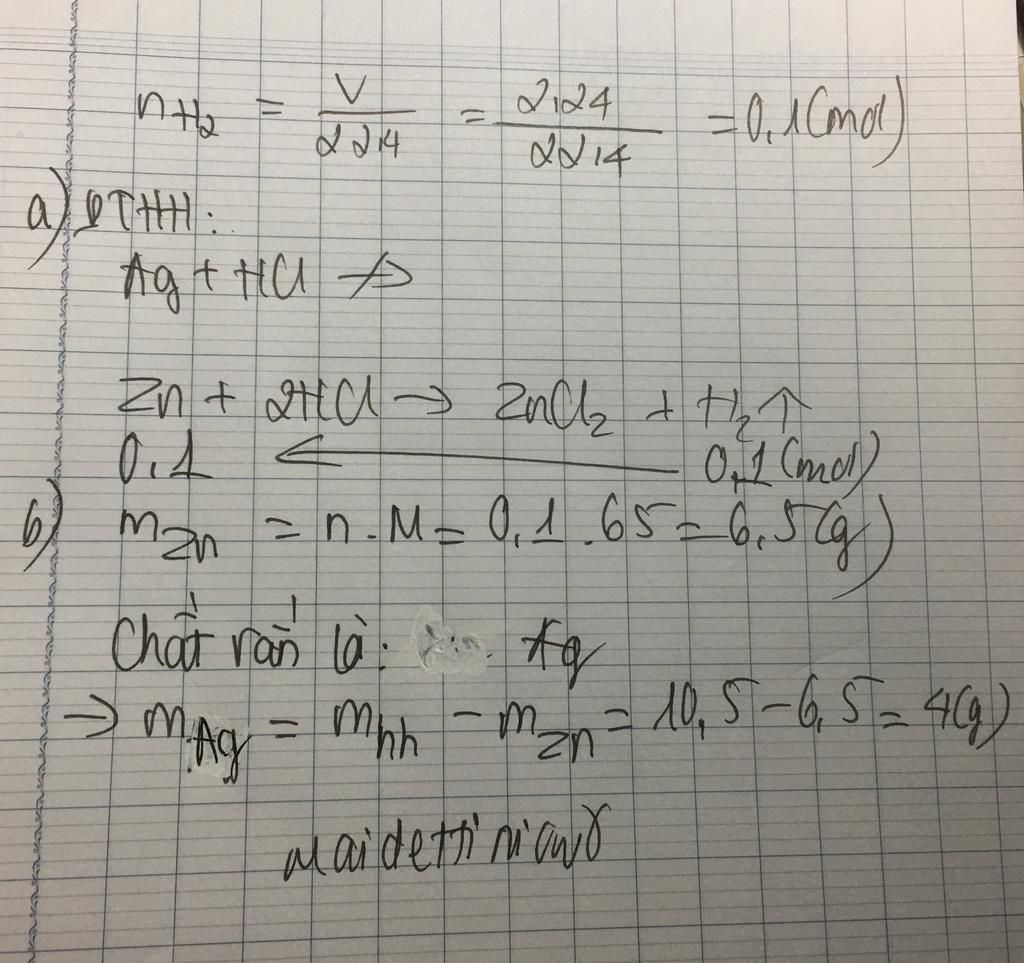 nH₂ = V/22,4 = 2,24/22,4 = 0,1 (mol)
a) PTHH:
Ag + HCl ↛
Zn + 2HCl → ZnCl₂ + H₂↑
0,1 ← 0,1 (mol)
b) mZn = n . M = 0,1 . 65 = 6,5 (g)
Chất rắn là: Ag
→ mAg = mhh - mZn = 10,5 - 6,5 = 4 (g)